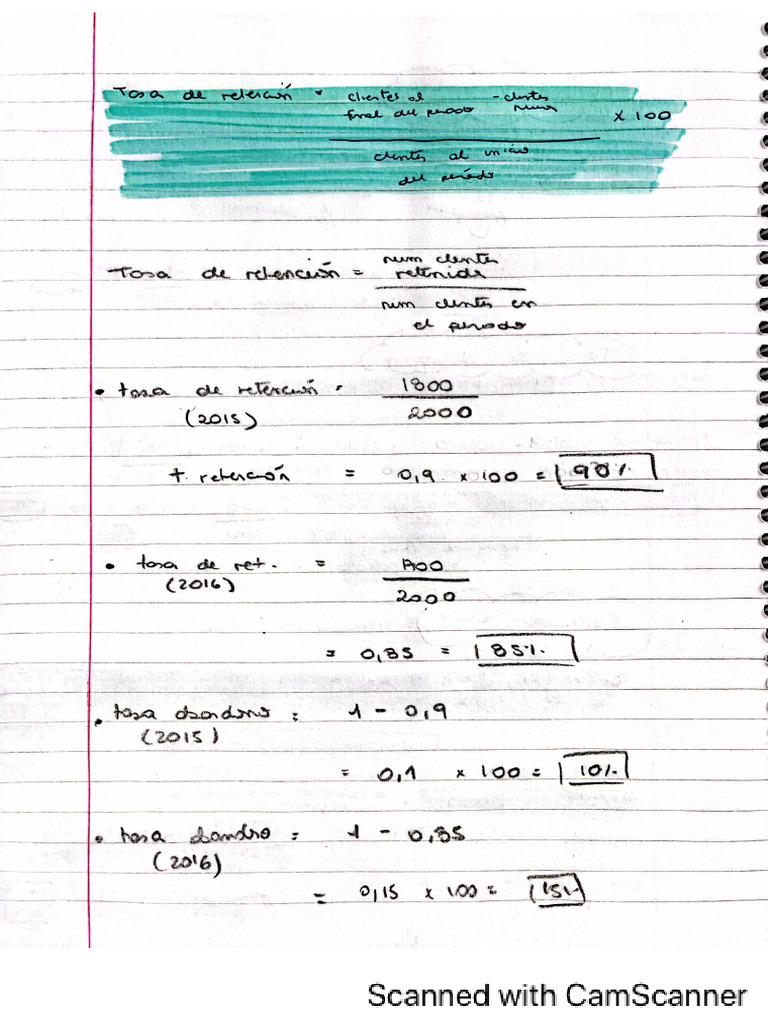 Tasa de retención = clientes al final del periodo - clientes nuevos x 100
clientes al inicio
del periódo
Tasa de retención = num clientes
retenidos
num clientes en
el periodo
• tasa de retención = 1800
(2015) 2000
t. retención = 0,9 x 100 = 90%
• tasa de ret. = 1700
(2016) 2000
= 0,85 = 85%
• tasa abandono = 1 - 0,9
(2015)
= 0,1 x 100 = 10%
• tasa abandono = 1 - 0,85
(2016)
= 0,15 x 100 = 15%
Scanned with CamScanner